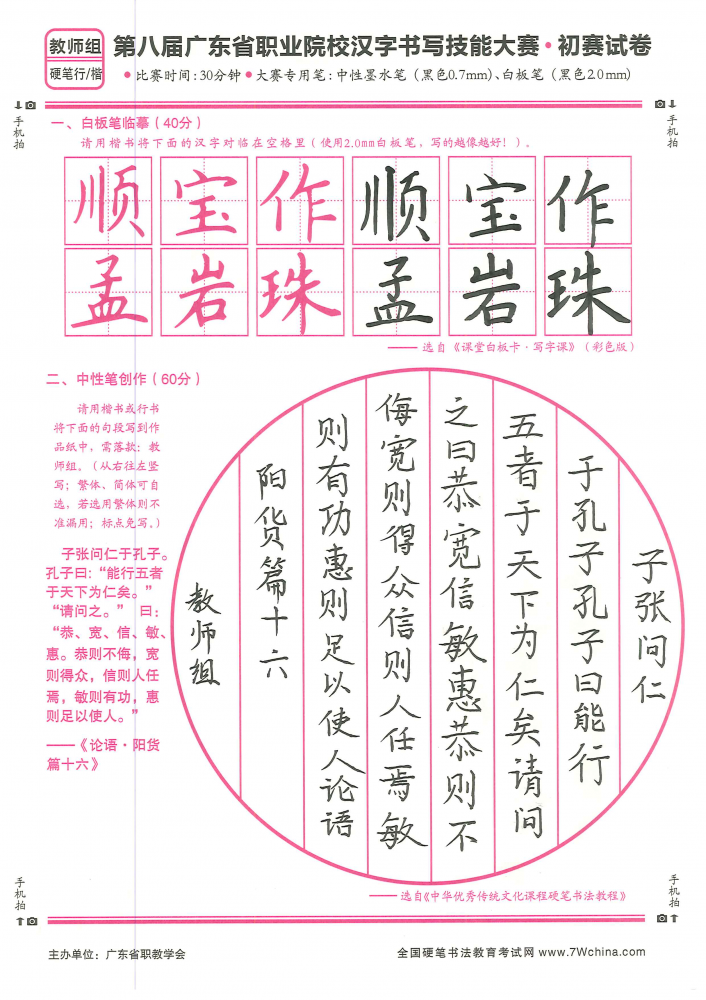 教师组
硬笔行/楷
第八届广东省职业院校汉字书写技能大赛·初赛试卷
●比赛时间:30分钟●大赛专用笔:中性墨水笔（黑色0.7mm）、白板笔（黑色2.0mm）
手机拍
手机拍
一、白板笔临摹（40分）
请用楷书将下面的汉字对临在空格里（使用2.0mm白板笔，写的越像越好！）。
顺宝作顺宝作
孟岩珠孟岩珠
——选自《课堂白板卡·写字课》（彩色版）
二、中性笔创作（60分）
请用楷书或行书
将下面的句段写到作
品纸中，需落款：教
师组。（从右往左竖
写；繁体、简体可自
选，若选用繁体则不
准漏用；标点免写。）
子张问仁于孔子。
孔子曰：“能行五者
于天下为仁矣。”
“请问之。” 曰：
“恭、宽、信、敏、
惠。恭则不侮，宽
则得众，信则人任
焉，敏则有功，惠
则足以使人。”
——《论语·阳货
篇十六》
子张问仁
于孔子孔子曰能行
五者于天下为仁矣请问
之曰恭宽信敏惠恭则不
侮宽则得众信则人任焉敏
则有功惠则足以使人论语
阳货篇十六
教师组
——选自《中华优秀传统文化课程硬笔书法教程》
手机拍
手机拍
主办单位：广东省职教学会
全国硬笔书法教育考试网 www.7Wchina.com